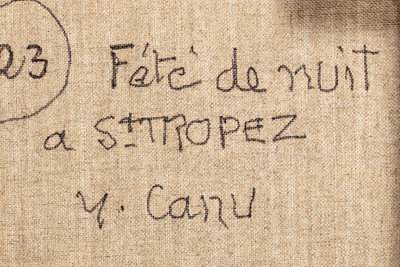 23 Fété de nuit
a St TROPEZ
y. Canu